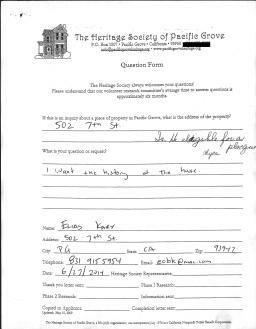 The Heritage Society of Pacific Grove
P.O. Box 1007 • Pacific Grove • California • 93950
Question Form
The Heritage Society always welcomes your questions!
Please understand that our volunteer research committee's average time to answer questions is
approximately six months.
If this is an inquiry about a piece of property in Pacific Grove, what is the address of the property?
502 7th St.
Is it eligible for a
plaque
What is your question or request?
I want the history of the house.
Name: Elias
Address: 502 7th St.
City: P.G State: CA Zip:
Telephone: 831 915 5954 Email:
Date: 6/27/2014 Heritage Society Representative:
Thank you letter sent: Phase 1 Research:
Phase 2 Research: Information sent:
Copied to Applicant: Completion letter sent: